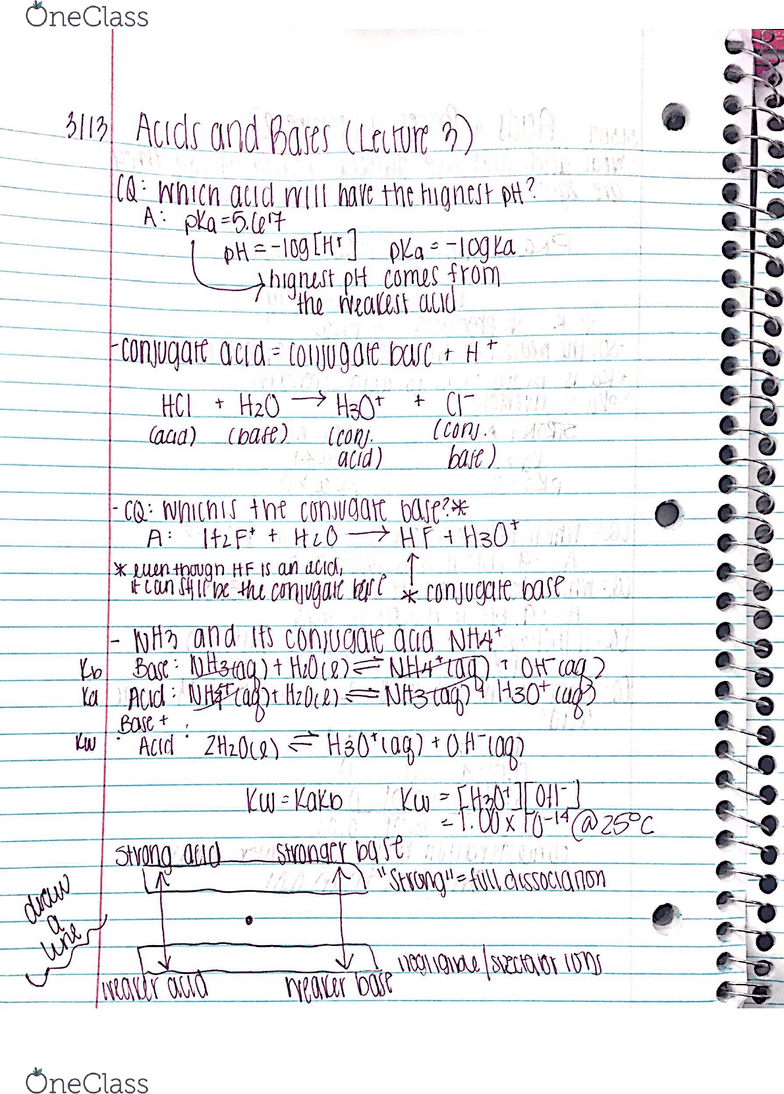 OneClass
3/13 Acids and Bases (Lecture 3)
CQ: which acid will have the highest pH?
A: pKa = 5.67
pH = -log[H+] pKa = -log Ka
highest pH comes from
the weakest acid
- conjugate acid = conjugate base + H+
HCl + H2O → H3O+ + Cl-
(acid) (base) (conj. acid) (conj. base)
- CQ: which is the conjugate base? *
A: H2F+ + H2O → HF + H3O+
* even though HF is an acid,
it can still be the conjugate base * conjugate base
- NH3 and its conjugate acid NH4+
Kb Base: NH3(aq) + H2O(l) ⇌ NH4+(aq) + OH-(aq)
Ka Acid: NH4+(aq) + H2O(l) ⇌ NH3(aq) + H3O+(aq)
Base +
Kw Acid: 2H2O(l) ⇌ H3O+(aq) + OH-(aq)
Kw = KaKb Kw = [H3O+][OH-]
= 1.00 x 10-14 @ 25°C
strong acid stronger base
"strong" = full dissociation
draw
a
line
negligible/spectator ions
weaker acid weaker base
OneClass